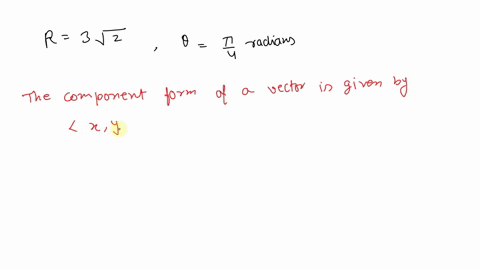 R = 3√2 , θ = π/4 radians
The component form of a vector is given by
< x, y